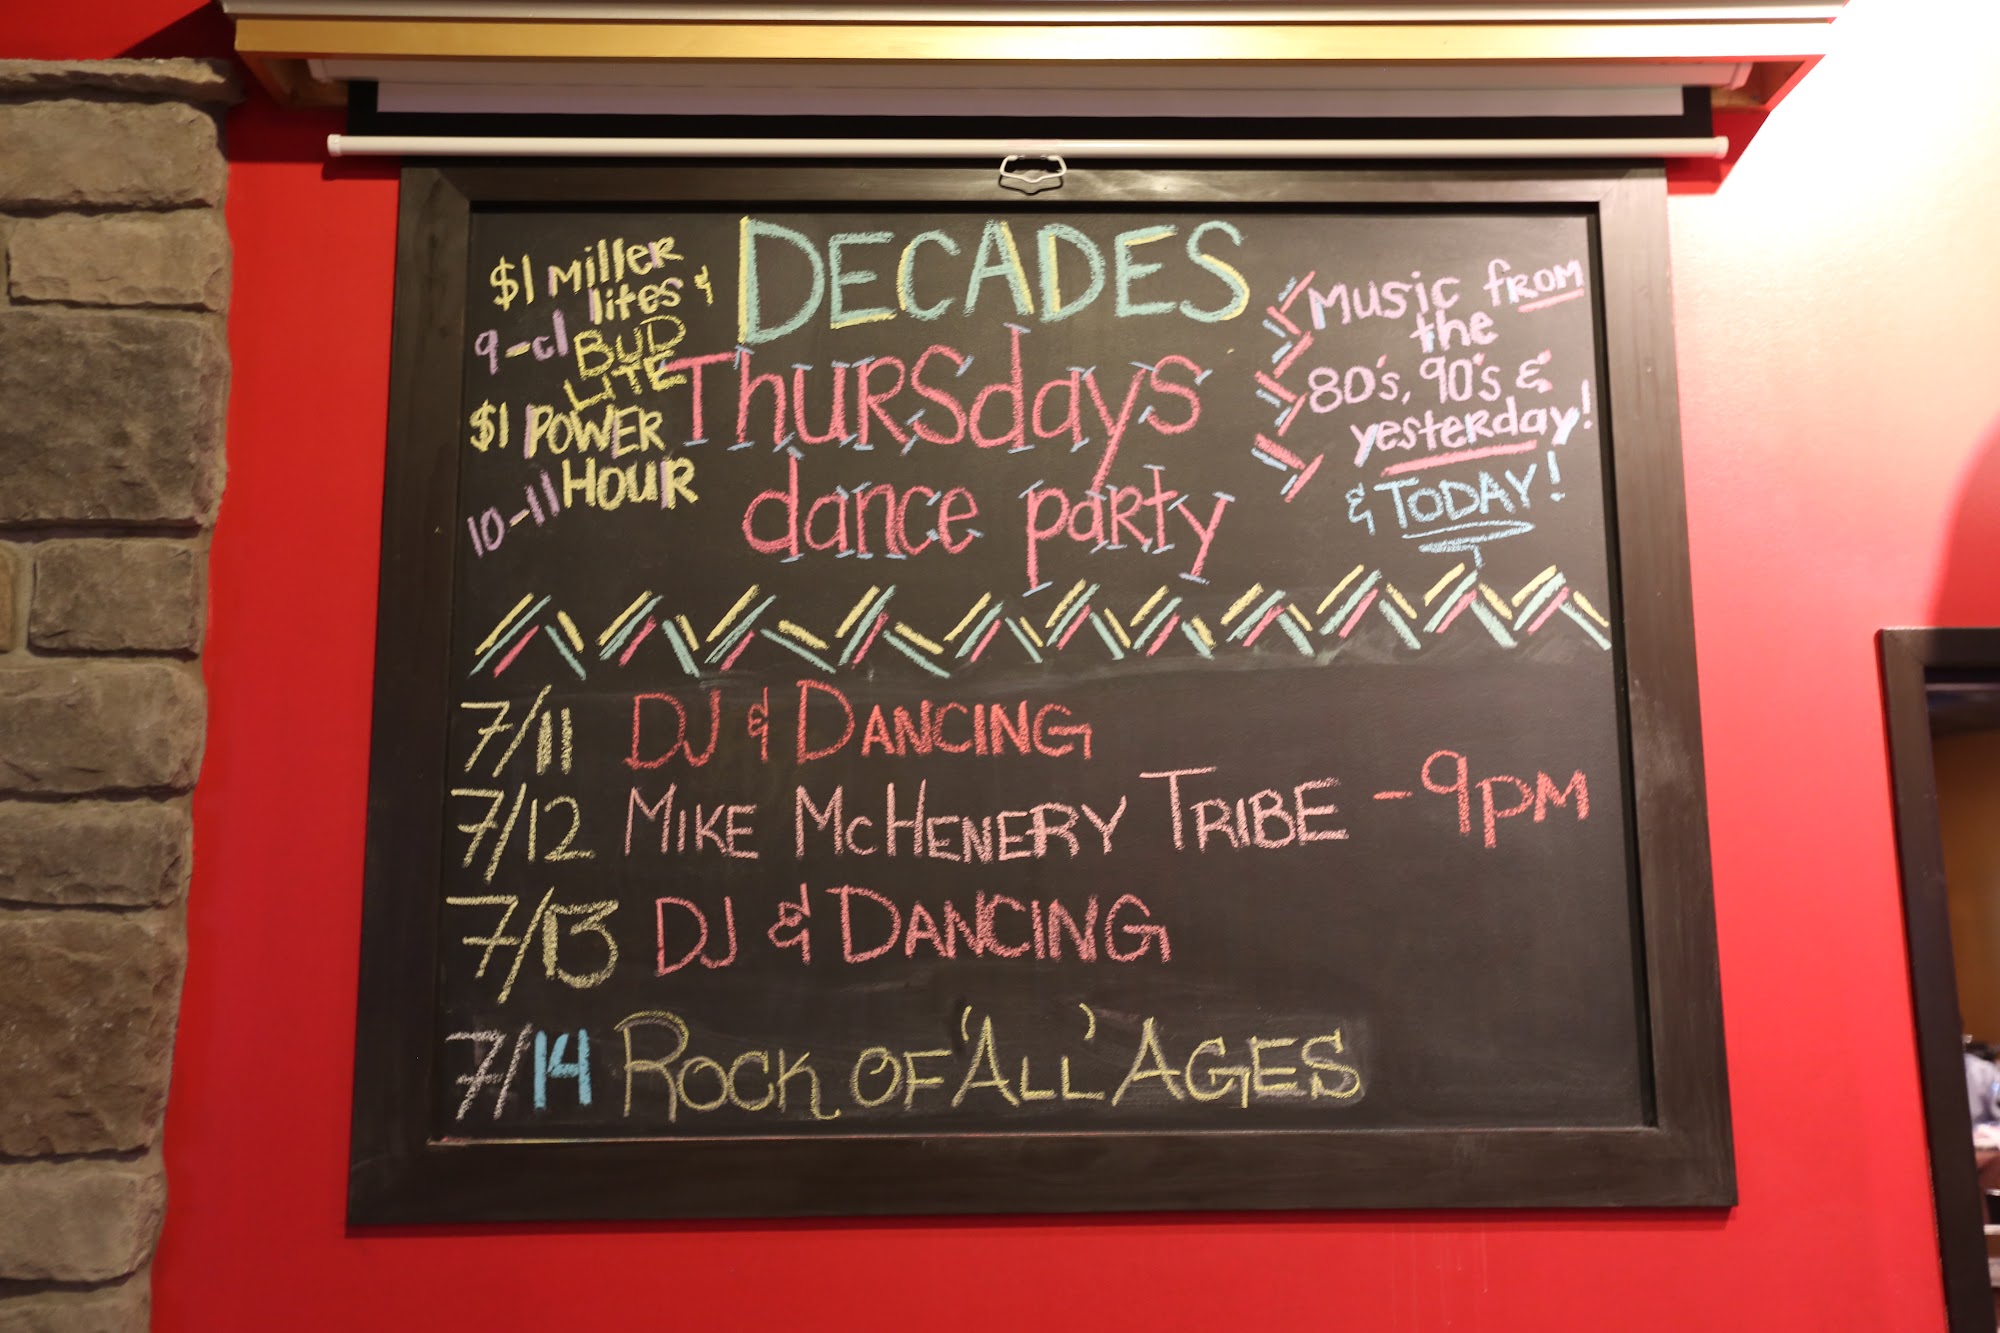 $1 Miller
lites &
9-cl BUD
LITE
$1 POWER
HOUR
10-11
DECADES
Thursdays
dance party
Music from
the
80's, 90's &
yesterday!
& TODAY!
7/11 DJ & DANCING
7/12 MIKE MCHENERY TRIBE -9PM
7/13 DJ & DANCING
7/14 ROCK OF 'ALL' AGES